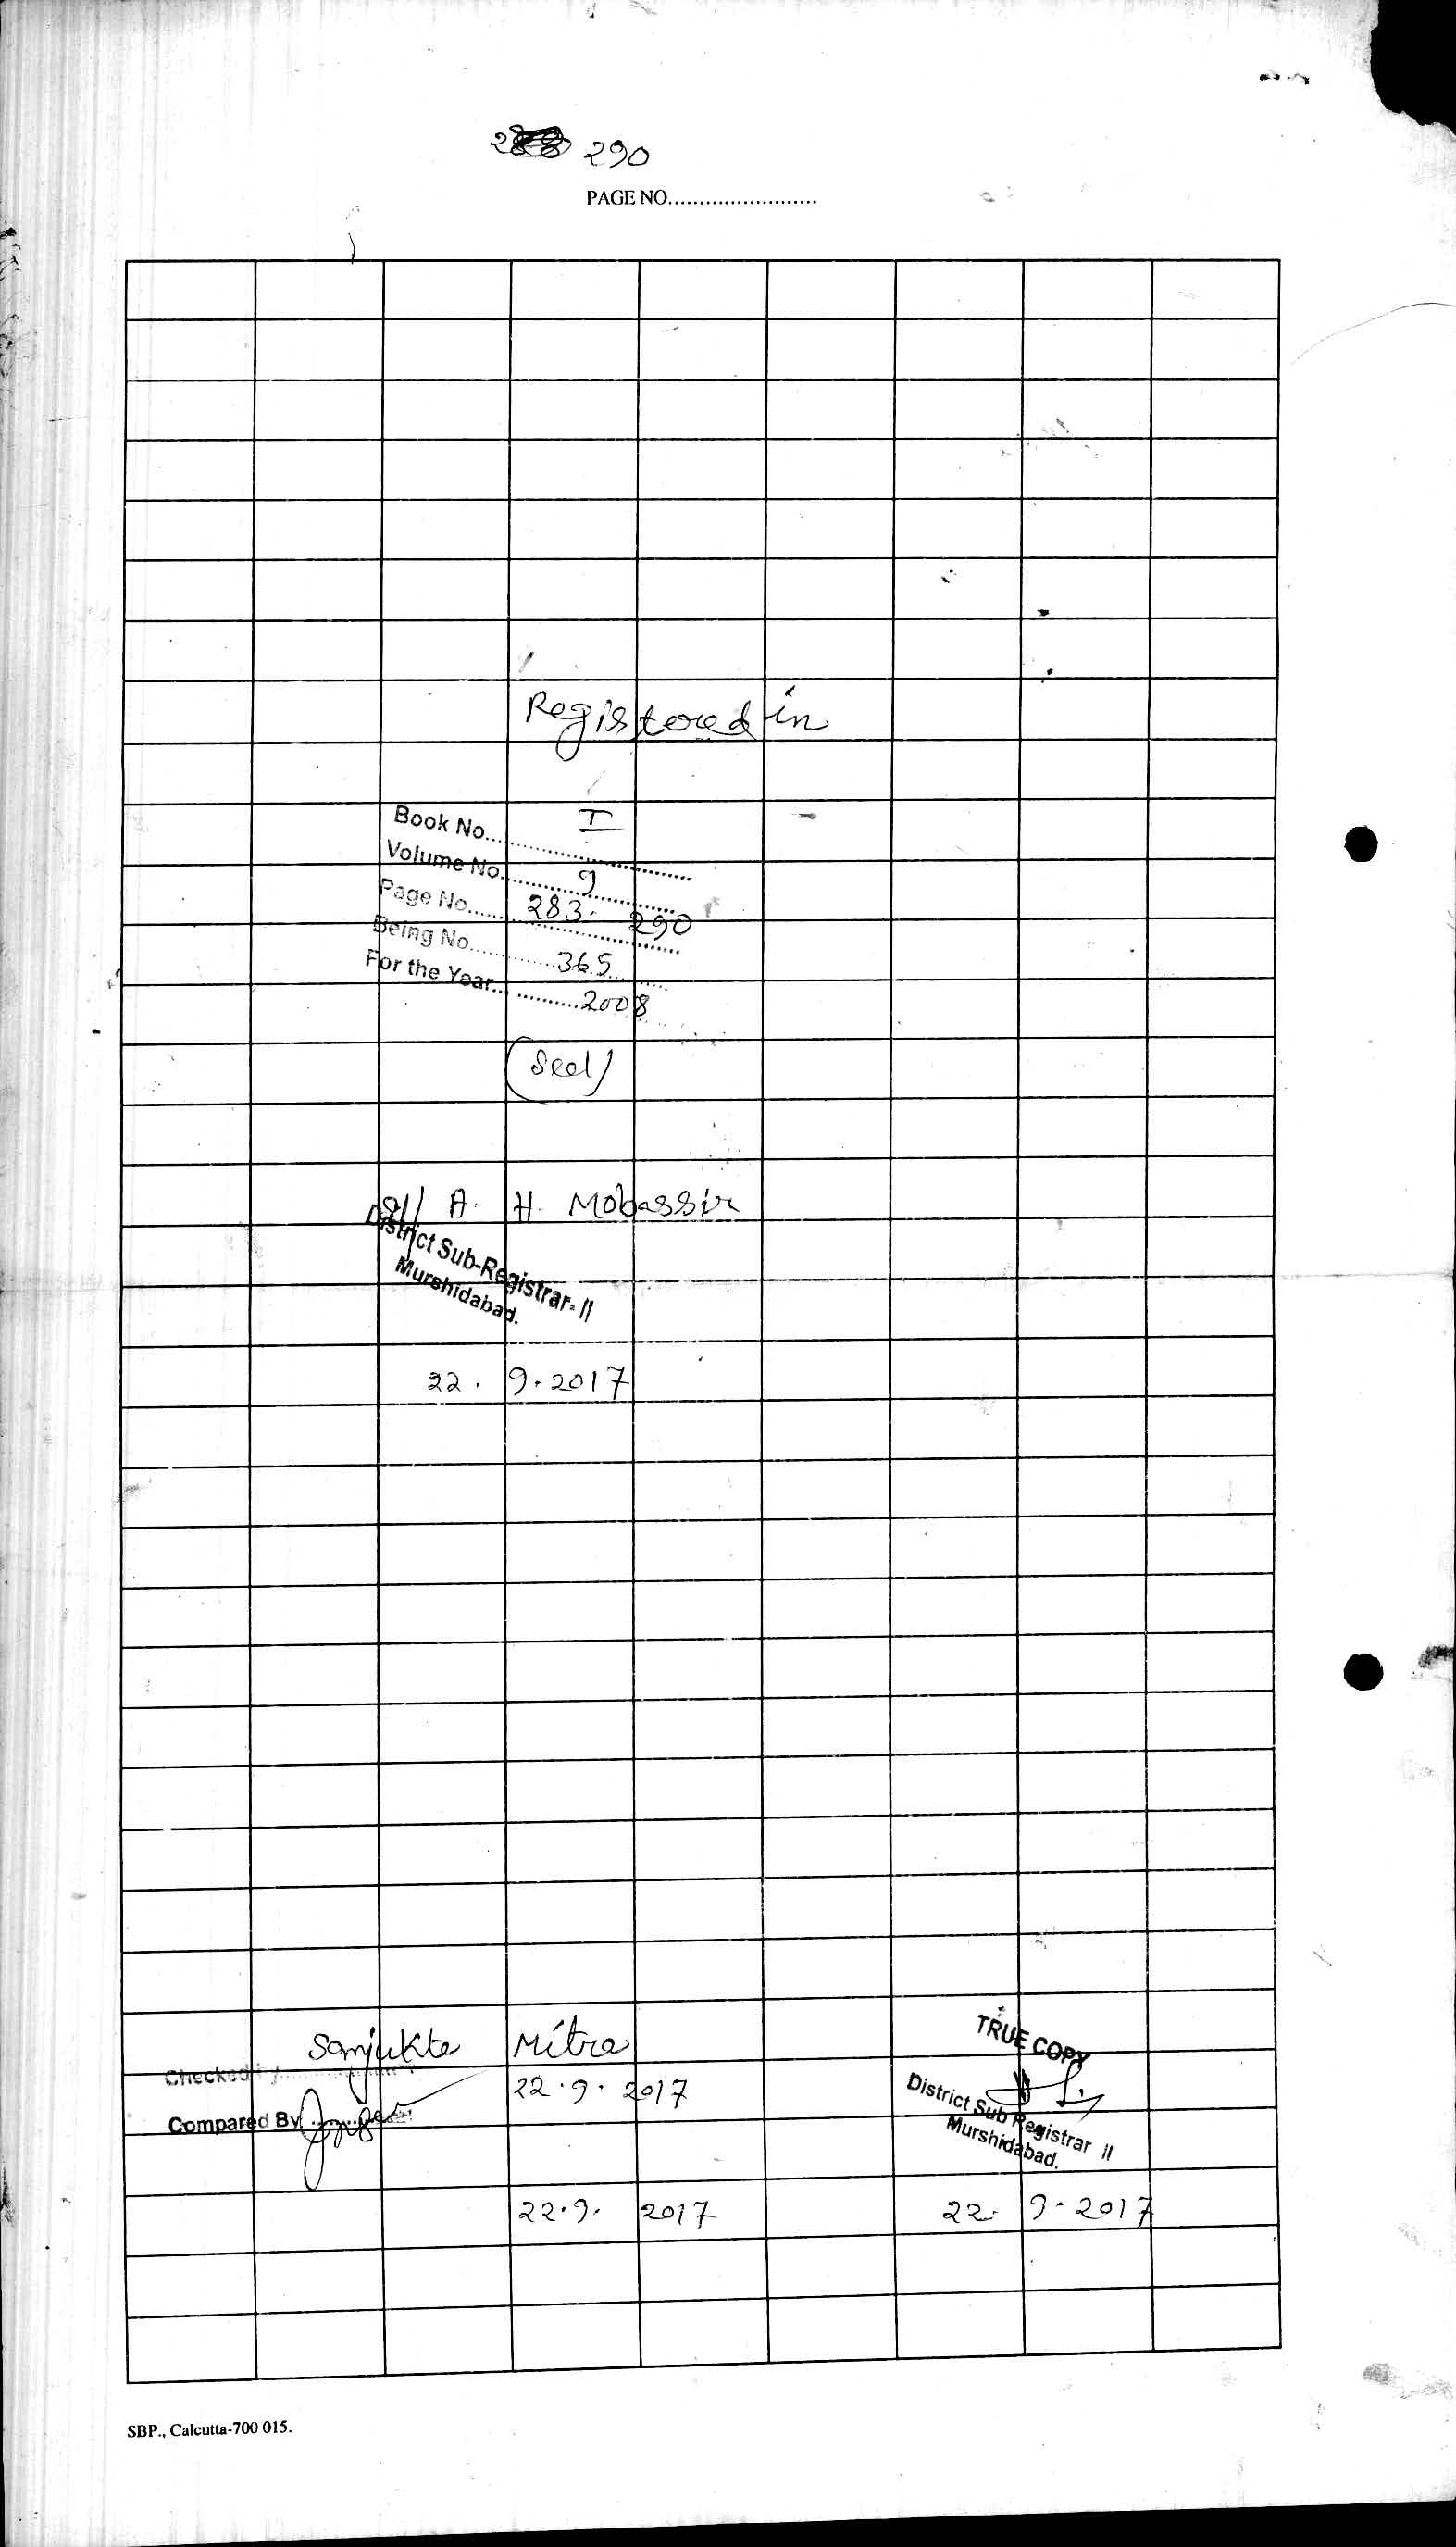 290
PAGE NO.........................
Registered in
Book No.... I
Volume No.... 9
Page No.... 283 - 290
Being No.... 365
For the Year.... 2008
(Seal)
Sd/ A. H. Mobassir
District Sub-Registrar- II
Murshidabad.
22. 9. 2017
Sanjukta Mitra
Checked By
22.9.2017
Compared By
22.9.2017
TRUE COPY
District Sub Registrar II
Murshidabad.
22. 9. 2017
SBP., Calcutta-700 015.